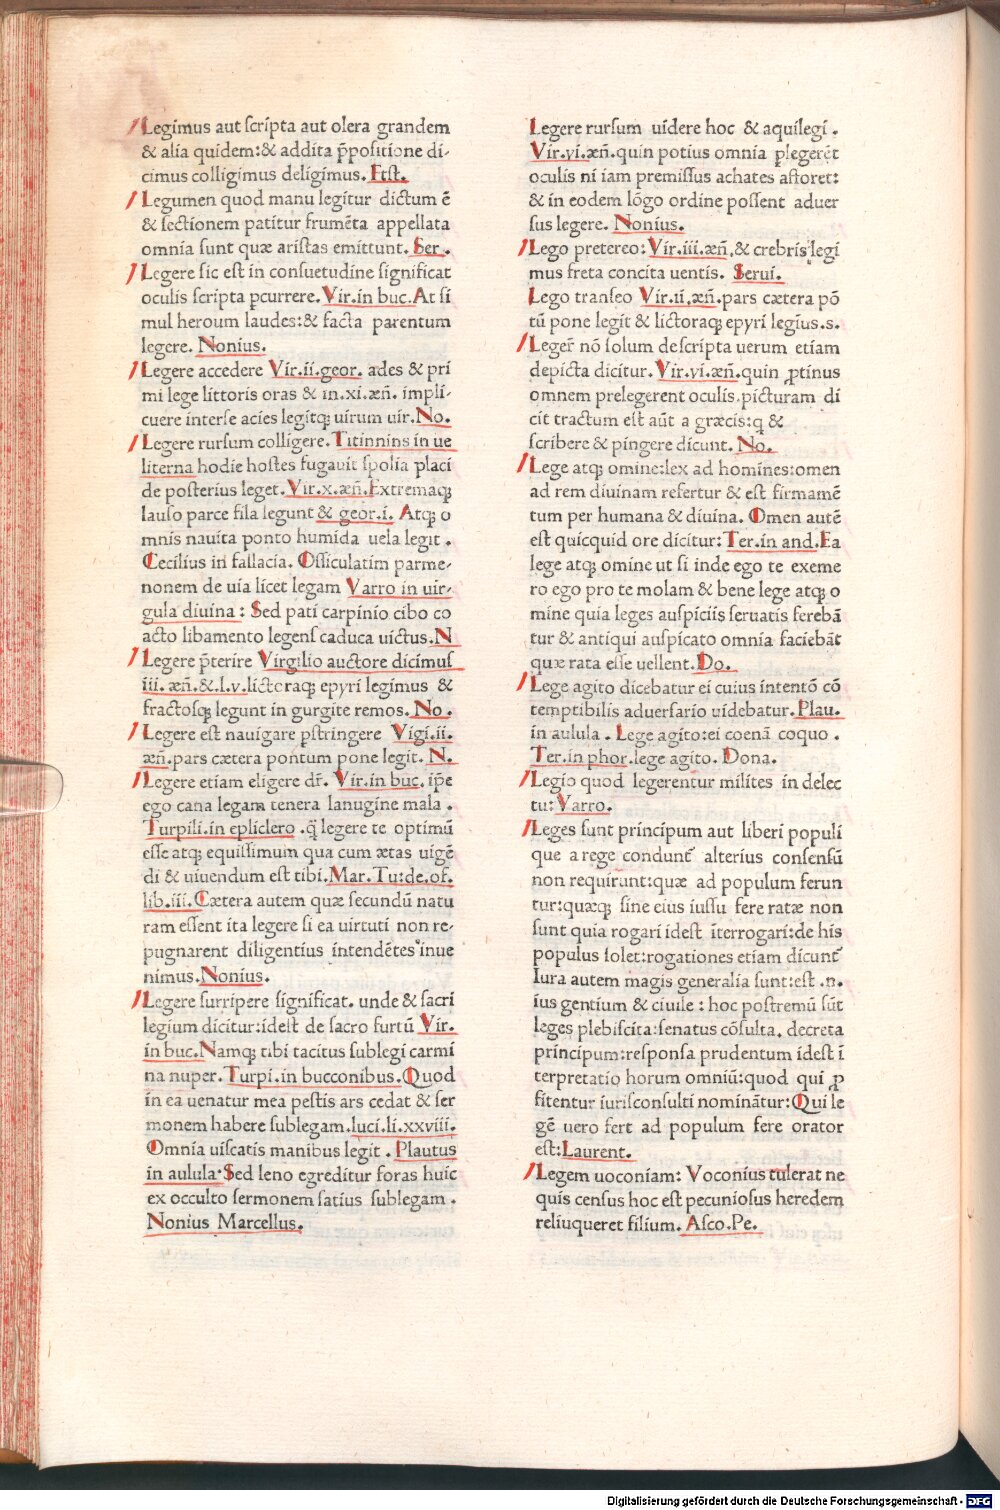 Legimus aut scripta aut olera grandem
& alia quidem:& addita p̄positione di-
cimus colligimus deligimus. Fest.
Legumen quod manu legitur dictum ē
& sectionem patitur frumēta appellata
omnia sunt quæ aristas emittunt. Ser.
Legere sic est in consuetudine significat
oculis scripta ꝑcurrere. Vir. in buc. At si
mul heroum laudes:& facta parentum
legere. Nonius.
Legere accedere Vir.ii.geor. ades & pri
mi lege littoris oras & in.xi.æn̄. impli-
cuere interse acies legitq; uirum uir. No.
Legere rursum colligere. Titinnins in ue
literna hodie hostes fugauit spolia placi
de posterius leget. Vir.x.æn̄. Extremaq;
lauso parce fila legunt & geor.i. Atq; o
mnis nauita ponto humida uela legit.
Cecilius in fallacia. Ossiculatim parme-
nonem de uia licet legam Varro in uir-
gula diuina: Sed pati carpinio cibo co
acto libamento legens caduca uictus. N
Legere p̄terire Virgilio auctore dicimus
iii.æn̄.&.l.v.lictoraq; epyri legimus &
fractosq; legunt in gurgite remos. No.
Legere est nauigare ꝑstringere Vigi.ii.
æn̄.pars cætera pontum pone legit. N.
Legere etiam eligere dr̄. Vir.in buc. ip̄e
ego cana legam tenera lanugine mala.
Turpili.in epliclero .q̄ legere te optimū
esse atq; equissimum qua cum ætas uigē
di & uiuendum est tibi. Mar. Tu:de.of.
lib.iii. Cætera autem quæ secundū natu
ram essent ita legere si ea uirtuti non re-
pugnarent diligentius intendētes inue
nimus. Nonius.
Legere surripere significat. unde & sacri
legium dicitur:idest de sacro furtū Vir.
in buc. Namq; tibi tacitus sublegi carmi
na nuper. Turpi.in bucconibus. Quod
in ea uenatur mea pestis ars cedat & ser
monem habere sublegam.luci.li.xxviii.
Omnia uiscatis manibus legit. Plautus
in aulula: Sed leno egreditur foras huic
ex occulto sermonem satius sublegam.
Nonius Marcellus.
Legere rursum uidere hoc & aquilegi.
Vir.vi.æn̄.quin potius omnia ꝑlegerēt
oculis ni iam premissus achates astoret:
& in eodem lōgo ordine possent aduer
sus legere. Nonius.
Lego pretereo: Vir.iii.æn̄.& crebris legi
mus freta concita uentis. Serui.
Lego transeo Vir.ii.æn̄.pars cætera pō
tū pone legit & lictoraq; epyri legius.s.
Leger̄ nō solum descripta uerum etiam
depicta dicitur. Vir.vi.æn̄.quin ꝓtinus
omnem prelegerent oculis.picturam di
cit tractum est aūt a græcis:q &
scribere & pingere dicunt. No.
Lege atq; omine:lex ad homines:omen
ad rem diuinam refertur & est firmamē
tum per humana & diuina. Omen autē
est quicquid ore dicitur: Ter.in and. Ea
lege atq; omine ut si inde ego te exeme
ro ego pro te molam & bene lege atq; o
mine quia leges auspiciis seruatis ferebā
tur & antiqui auspicato omnia faciebāt
quæ rata esse uellent. Do.
Lege agito dicebatur ei cuius intentō cō
temptibilis aduersario uidebatur. Plau.
in aulula. Lege agito:ei coenā coquo.
Ter.in phor.lege agito. Dona.
Legio quod legerentur milites in delec
tu: Varro.
Leges sunt principum aut liberi populi
que a rege condunt̄ alterius consensū
non requirunt:quæ ad populum ferun
tur:quæq; sine eius iussu fere ratæ non
sunt quia rogari idest īterrogari:de his
populus solet:rogationes etiam dicunt̄
Iura autem magis generalia sunt:est .n.
ius gentium & ciuile: hoc postremū sūt
leges plebiscita:senatus cōsulta. decreta
principum:responsa prudentum idest ī
terpretatio horum omniū:quod qui ꝓ
fitentur iurisconsulti nominātur: Qui le
gē uero fert ad populum fere orator
est: Laurent.
Legem uoconiam: Voconius tulerat ne
quis census hoc est pecuniosus heredem
reliuqueret filium. Asco.Pe.
Digitalisierung gefördert durch die Deutsche Forschungsgemeinschaft - DFG